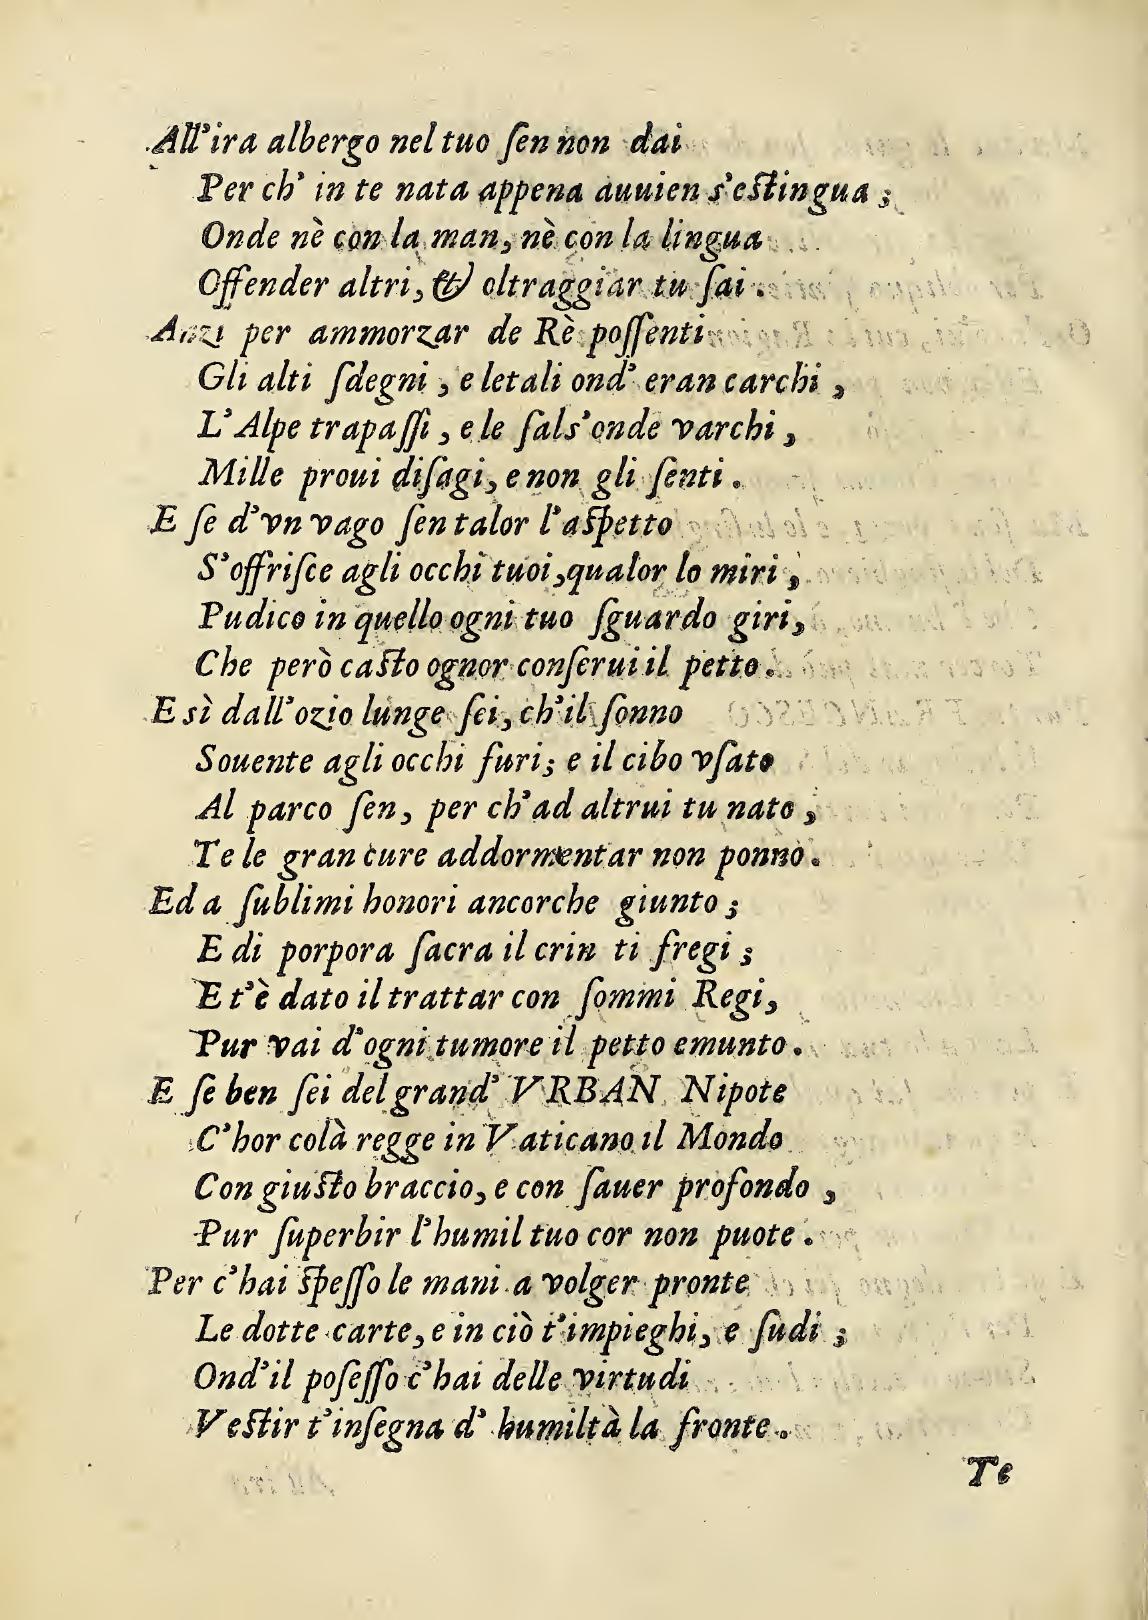 All'ira albergo nel tuo ſen non dai
Per ch' in te nata appena auuien s'eſtingua ;
Onde nè con la man, nè con la lingua
Offender altri, & oltraggiar tu ſai .
Anzi per ammorzar de Rè poſſenti
Gli alti ſdegni , e letali ond' eran carchi ,
L' Alpe trapaſſi , e le ſals'onde varchi ,
Mille proui diſagi, e non gli ſenti .
E ſe d'vn vago ſen talor l'aſpetto
S'offriſce agli occhi tuoi,qualor lo miri ,
Pudico in quello ogni tuo ſguardo giri,
Che però caſto ognor conſerui il petto .
E sì dall'ozio lunge ſei, ch'il ſonno
Souente agli occhi furi; e il cibo vſato
Al parco ſen, per ch'ad altrui tu nato ,
Te le gran cure addormentar non ponno .
Ed a ſublimi honori ancorche giunto ;
E di porpora ſacra il crin ti fregi ;
E t'è dato il trattar con ſommi Regi,
Pur vai d'ogni tumore il petto emunto .
E ſe ben ſei del grand' VRBAN Nipote
C'hor colà regge in Vaticano il Mondo
Con giuſto braccio, e con ſauer profondo ,
Pur ſuperbir l'humil tuo cor non puote .
Per c'hai ſpeſſo le mani a volger pronte
Le dotte carte, e in ciò t'impieghi, e ſudi ;
Ond'il poſeſſo c'hai delle virtudi
Veſtir t'inſegna d' humiltà la fronte .
Te